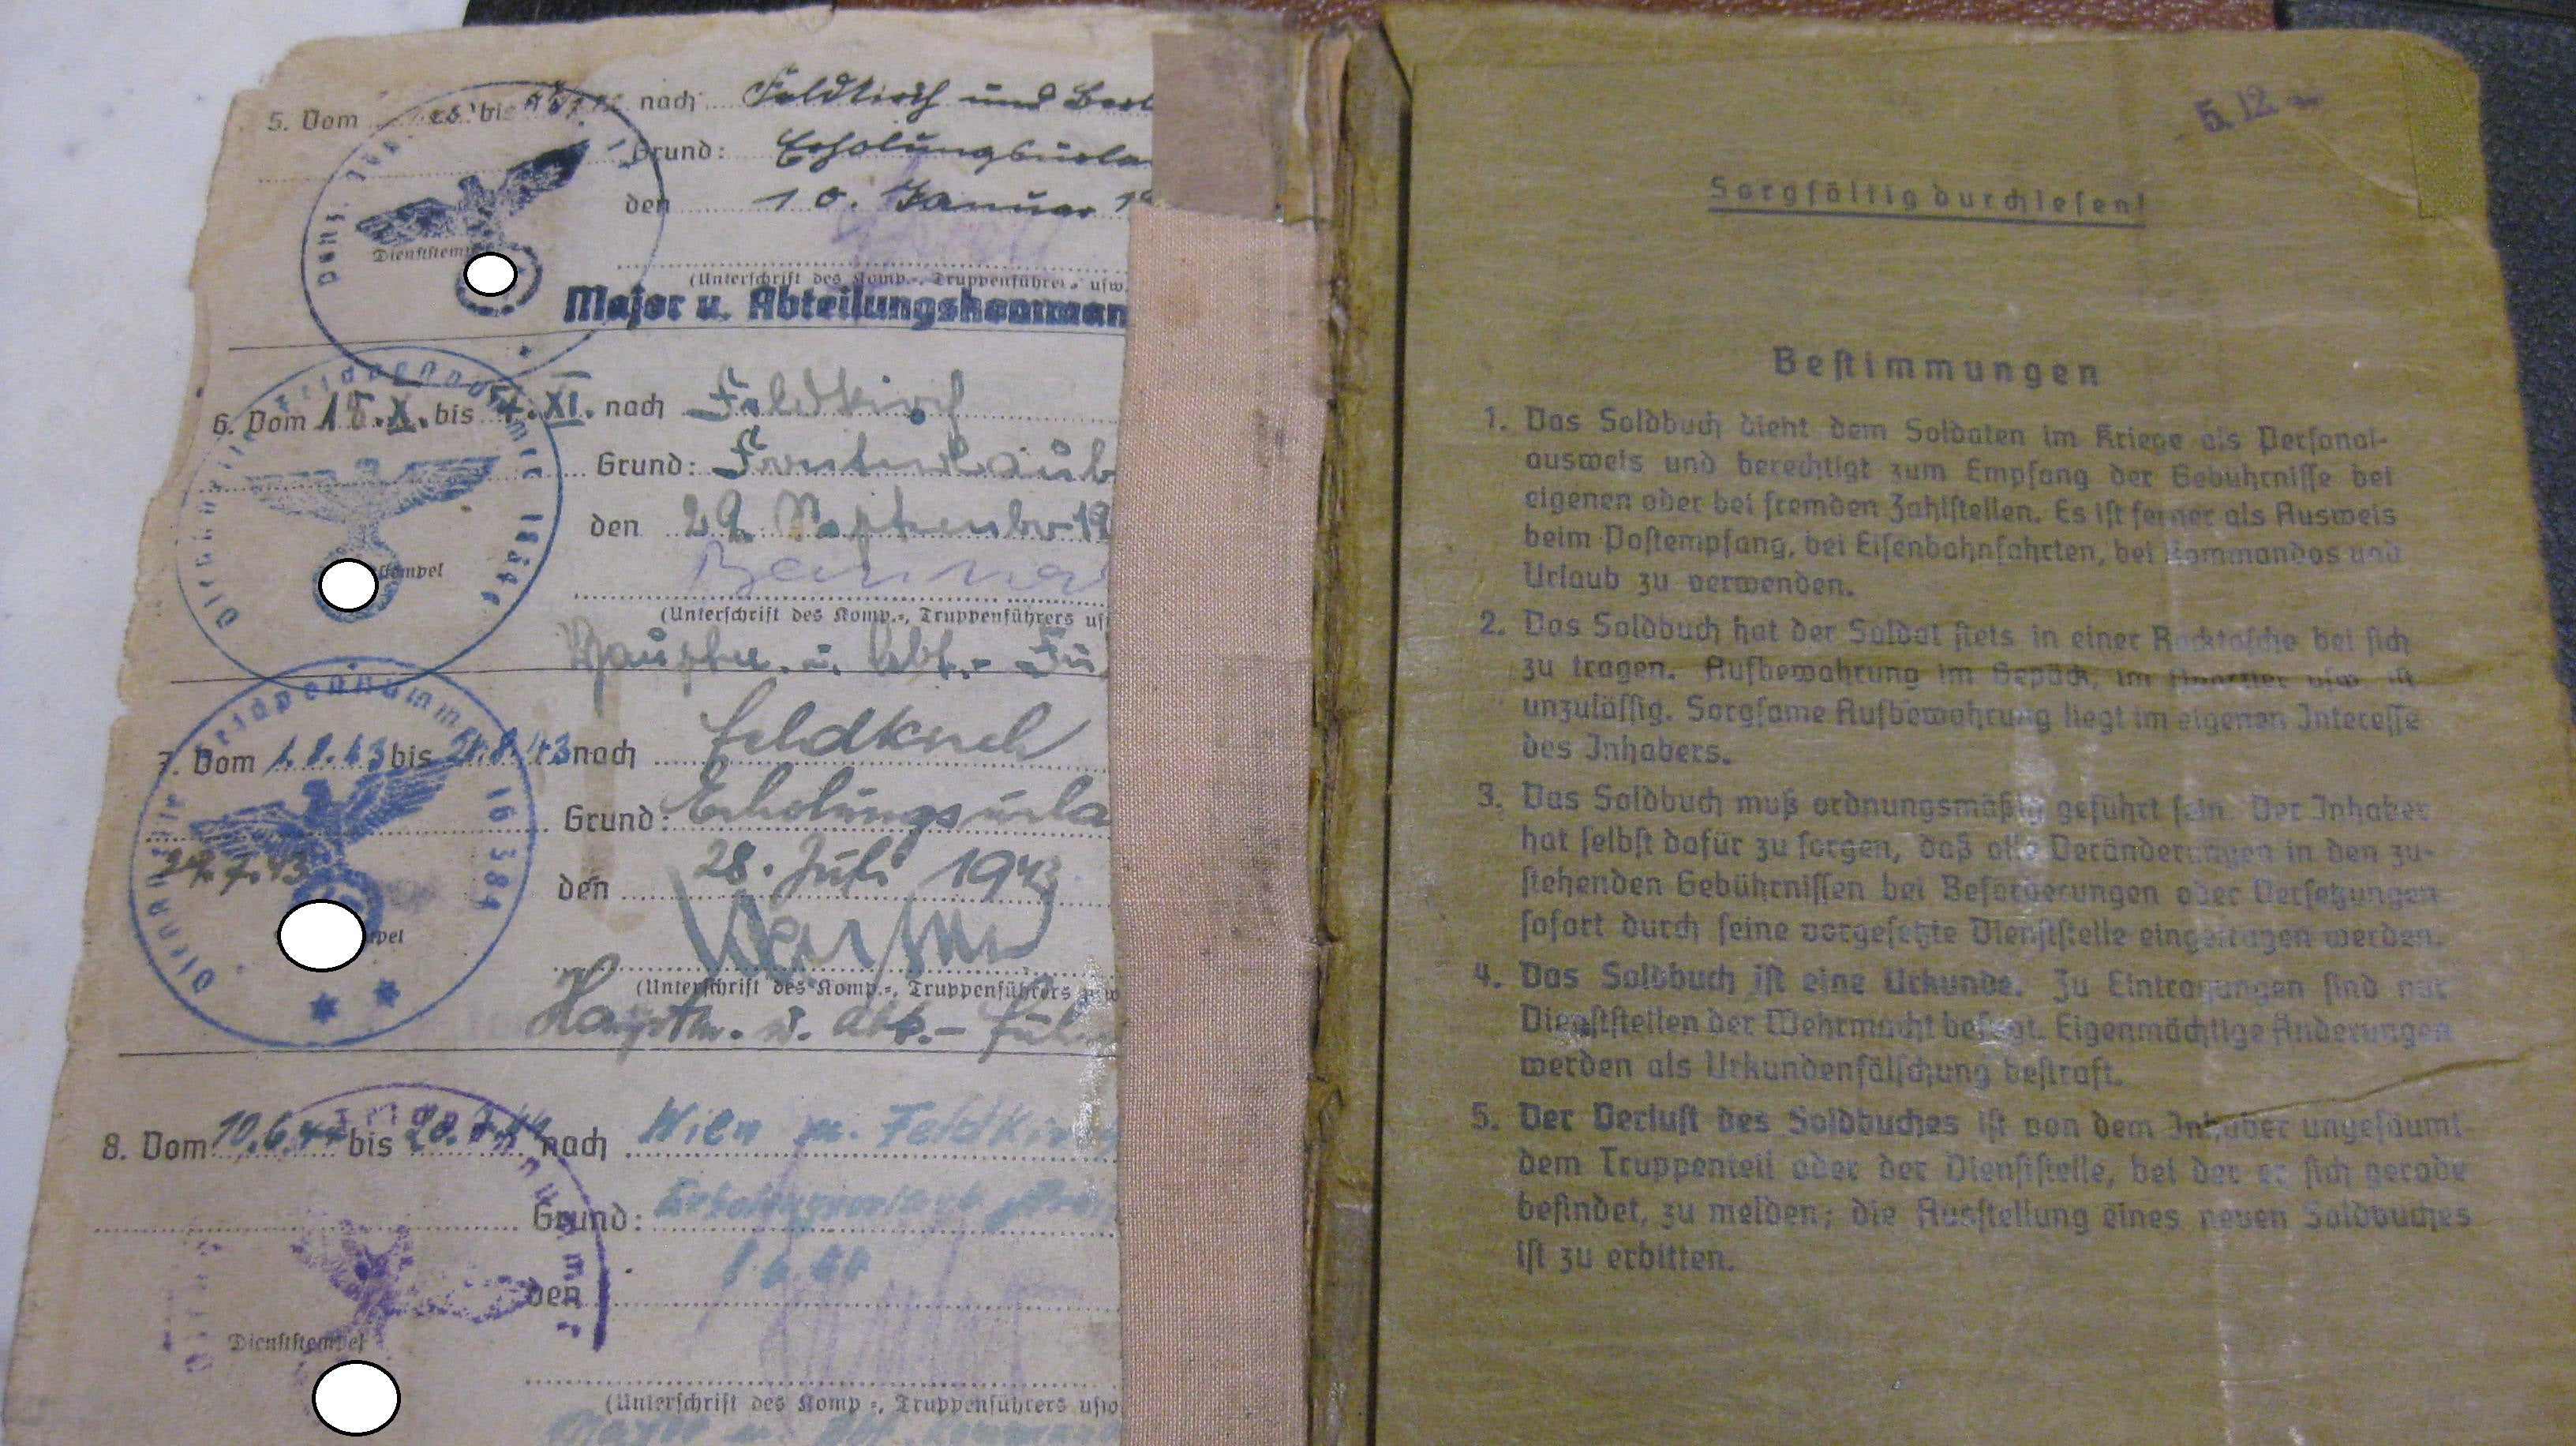 5. Vom bis nach Feldkirch und
Grund: Erholungsurla
den 10. Januar 19
Dienststem
(Unterschrift des Komp.-, Truppenführers usw.
Major u. Abteilungskomman
6. Vom 15. X. bis XI. nach Feldkirch
Grund: Fronturlaub
den 29. September 19
stempel
(Unterschrift des Komp.-, Truppenführers us
Hauptm. u. Abt.- Fü
Feldpostnummer
7. Vom 1.8.43 bis 21.8.43 nach Feldkirch
Grund: Erholungsurla
29.7.43
den 28. Juli 1943
pel
16 384
(Unterschrift des Komp.-, Truppenführers usw
Hauptm. u. Abt.- Füh
8. Vom 10.6.44 bis nach Wien u. Feldkirch
Grund: Erholungsurlaub
den 1.6.44
Dienststempel
(Unterschrift des Komp.-, Truppenführers usw.
Major u. Abt. Kommand
5. 12.
Sorgfältig durchlesen!
Bestimmungen
1. Das Soldbuch dient dem Soldaten im Kriege als Personal-
ausweis und berechtigt zum Empfang der Gebührnisse bei
eigenen oder bei fremden Zahlstellen. Es ist ferner als Ausweis
beim Postempfang, bei Eisenbahnfahrten, bei Kommandos und
Urlaub zu verwenden.
2. Das Soldbuch hat der Soldat stets in einer Rocktasche bei sich
zu tragen. Aufbewahrung im Gepäck, im Quartier usw. ist
unzulässig. Sorgsame Aufbewahrung liegt im eigenen Interesse
des Inhabers.
3. Das Soldbuch muß ordnungsmäßig geführt sein. Der Inhaber
hat selbst dafür zu sorgen, daß alle Veränderungen in den zu-
stehenden Gebührnissen bei Beförderungen oder Versetzungen
sofort durch seine vorgesetzte Dienststelle eingetragen werden.
4. Das Soldbuch ist eine Urkunde. Zu Eintragungen sind nur
Dienststellen der Wehrmacht befugt. Eigenmächtige Änderungen
werden als Urkundenfälschung bestraft.
5. Der Verlust des Soldbuches ist von dem Inhaber ungesäumt
dem Truppenteil oder der Dienststelle, bei der er sich gerade
befindet, zu melden; die Ausstellung eines neuen Soldbuches
ist zu erbitten.